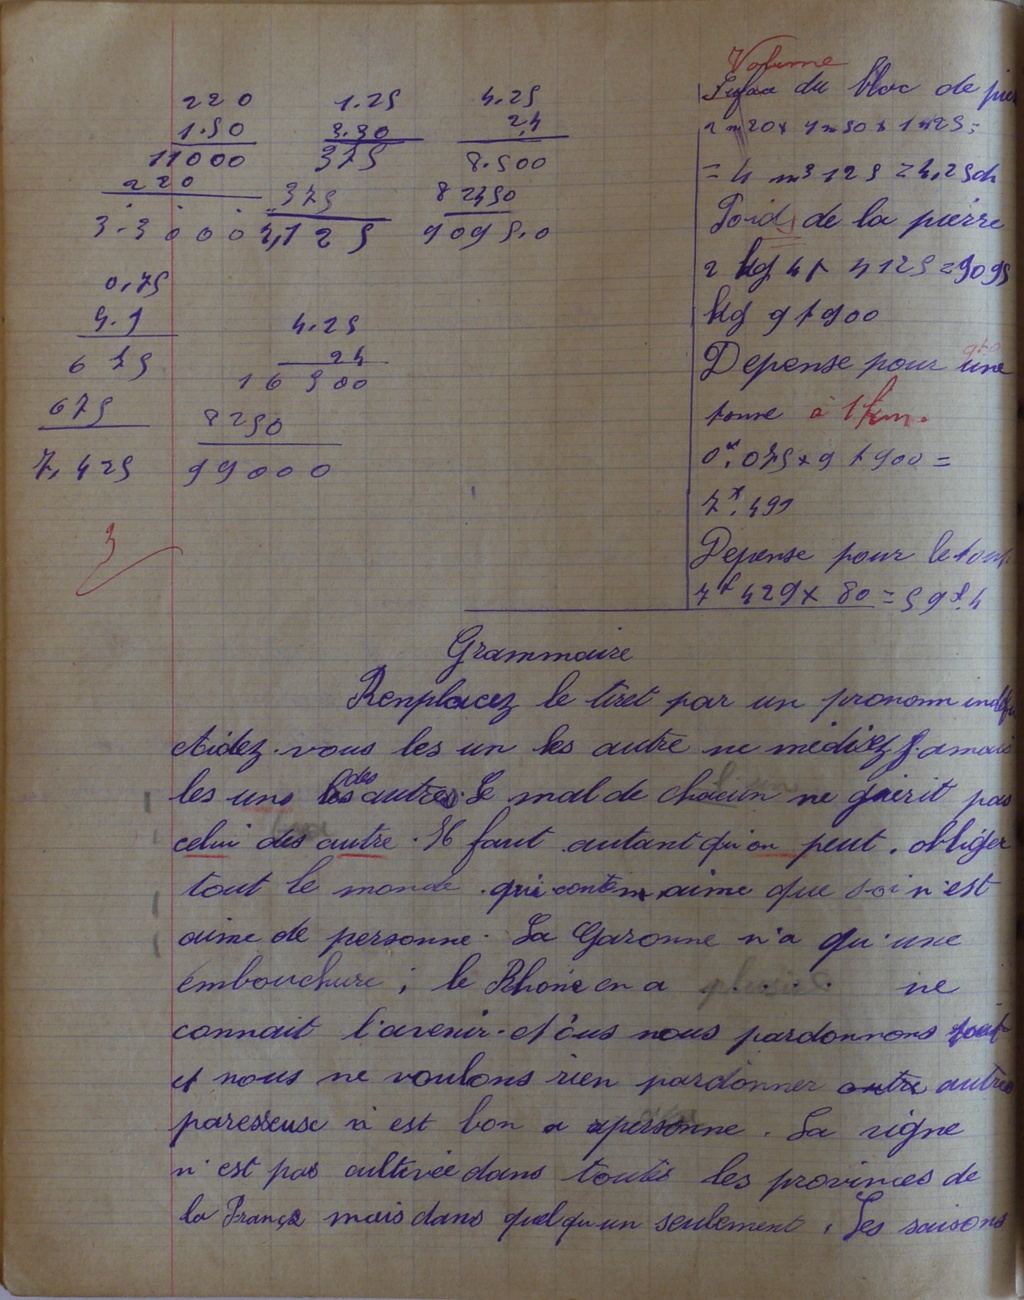 220
1.50
11000
220
3.3000
1.25
3.30
375
375
4,125
4.25
2,4
8.500
82450
9095.0
0,75
9.9
675
675
7,425
4.25
24
16500
8250
99000
3
Volume
du bloc de
2m20 x 1m50 x 1m25 =
= 4 m3 125
Poids de la pierre
2 kg 4 x 4125 = 9095
kg 9t900
Depense pour une
tonne à 1 km.
0f.075 x 9t900 =
7f.499
Depense pour le tout
7f 429 x 80 = 59f.4
Grammaire
Renplacez le tiret par un pronom
Aidez-vous les un les autre ne médisez jamais
les uns des autres. Le mal de chacun ne guérit pas
celui des autre. Il faut autant qu'on peut, obliger
tout le monde. qui aime que soi n'est
aime de personne. La Garonne n'a qu'une
embouchure ; le Rhône en a plusieu.... ne
connait l'avenir. Nous nous pardonnons tout
et nous ne voulons rien pardonner autres
paresseuse n'est bon a personne. La vigne
n'est pas cultivée dans toutes les provinces de
la França mais dans quelqu'un seulement. Les saisons